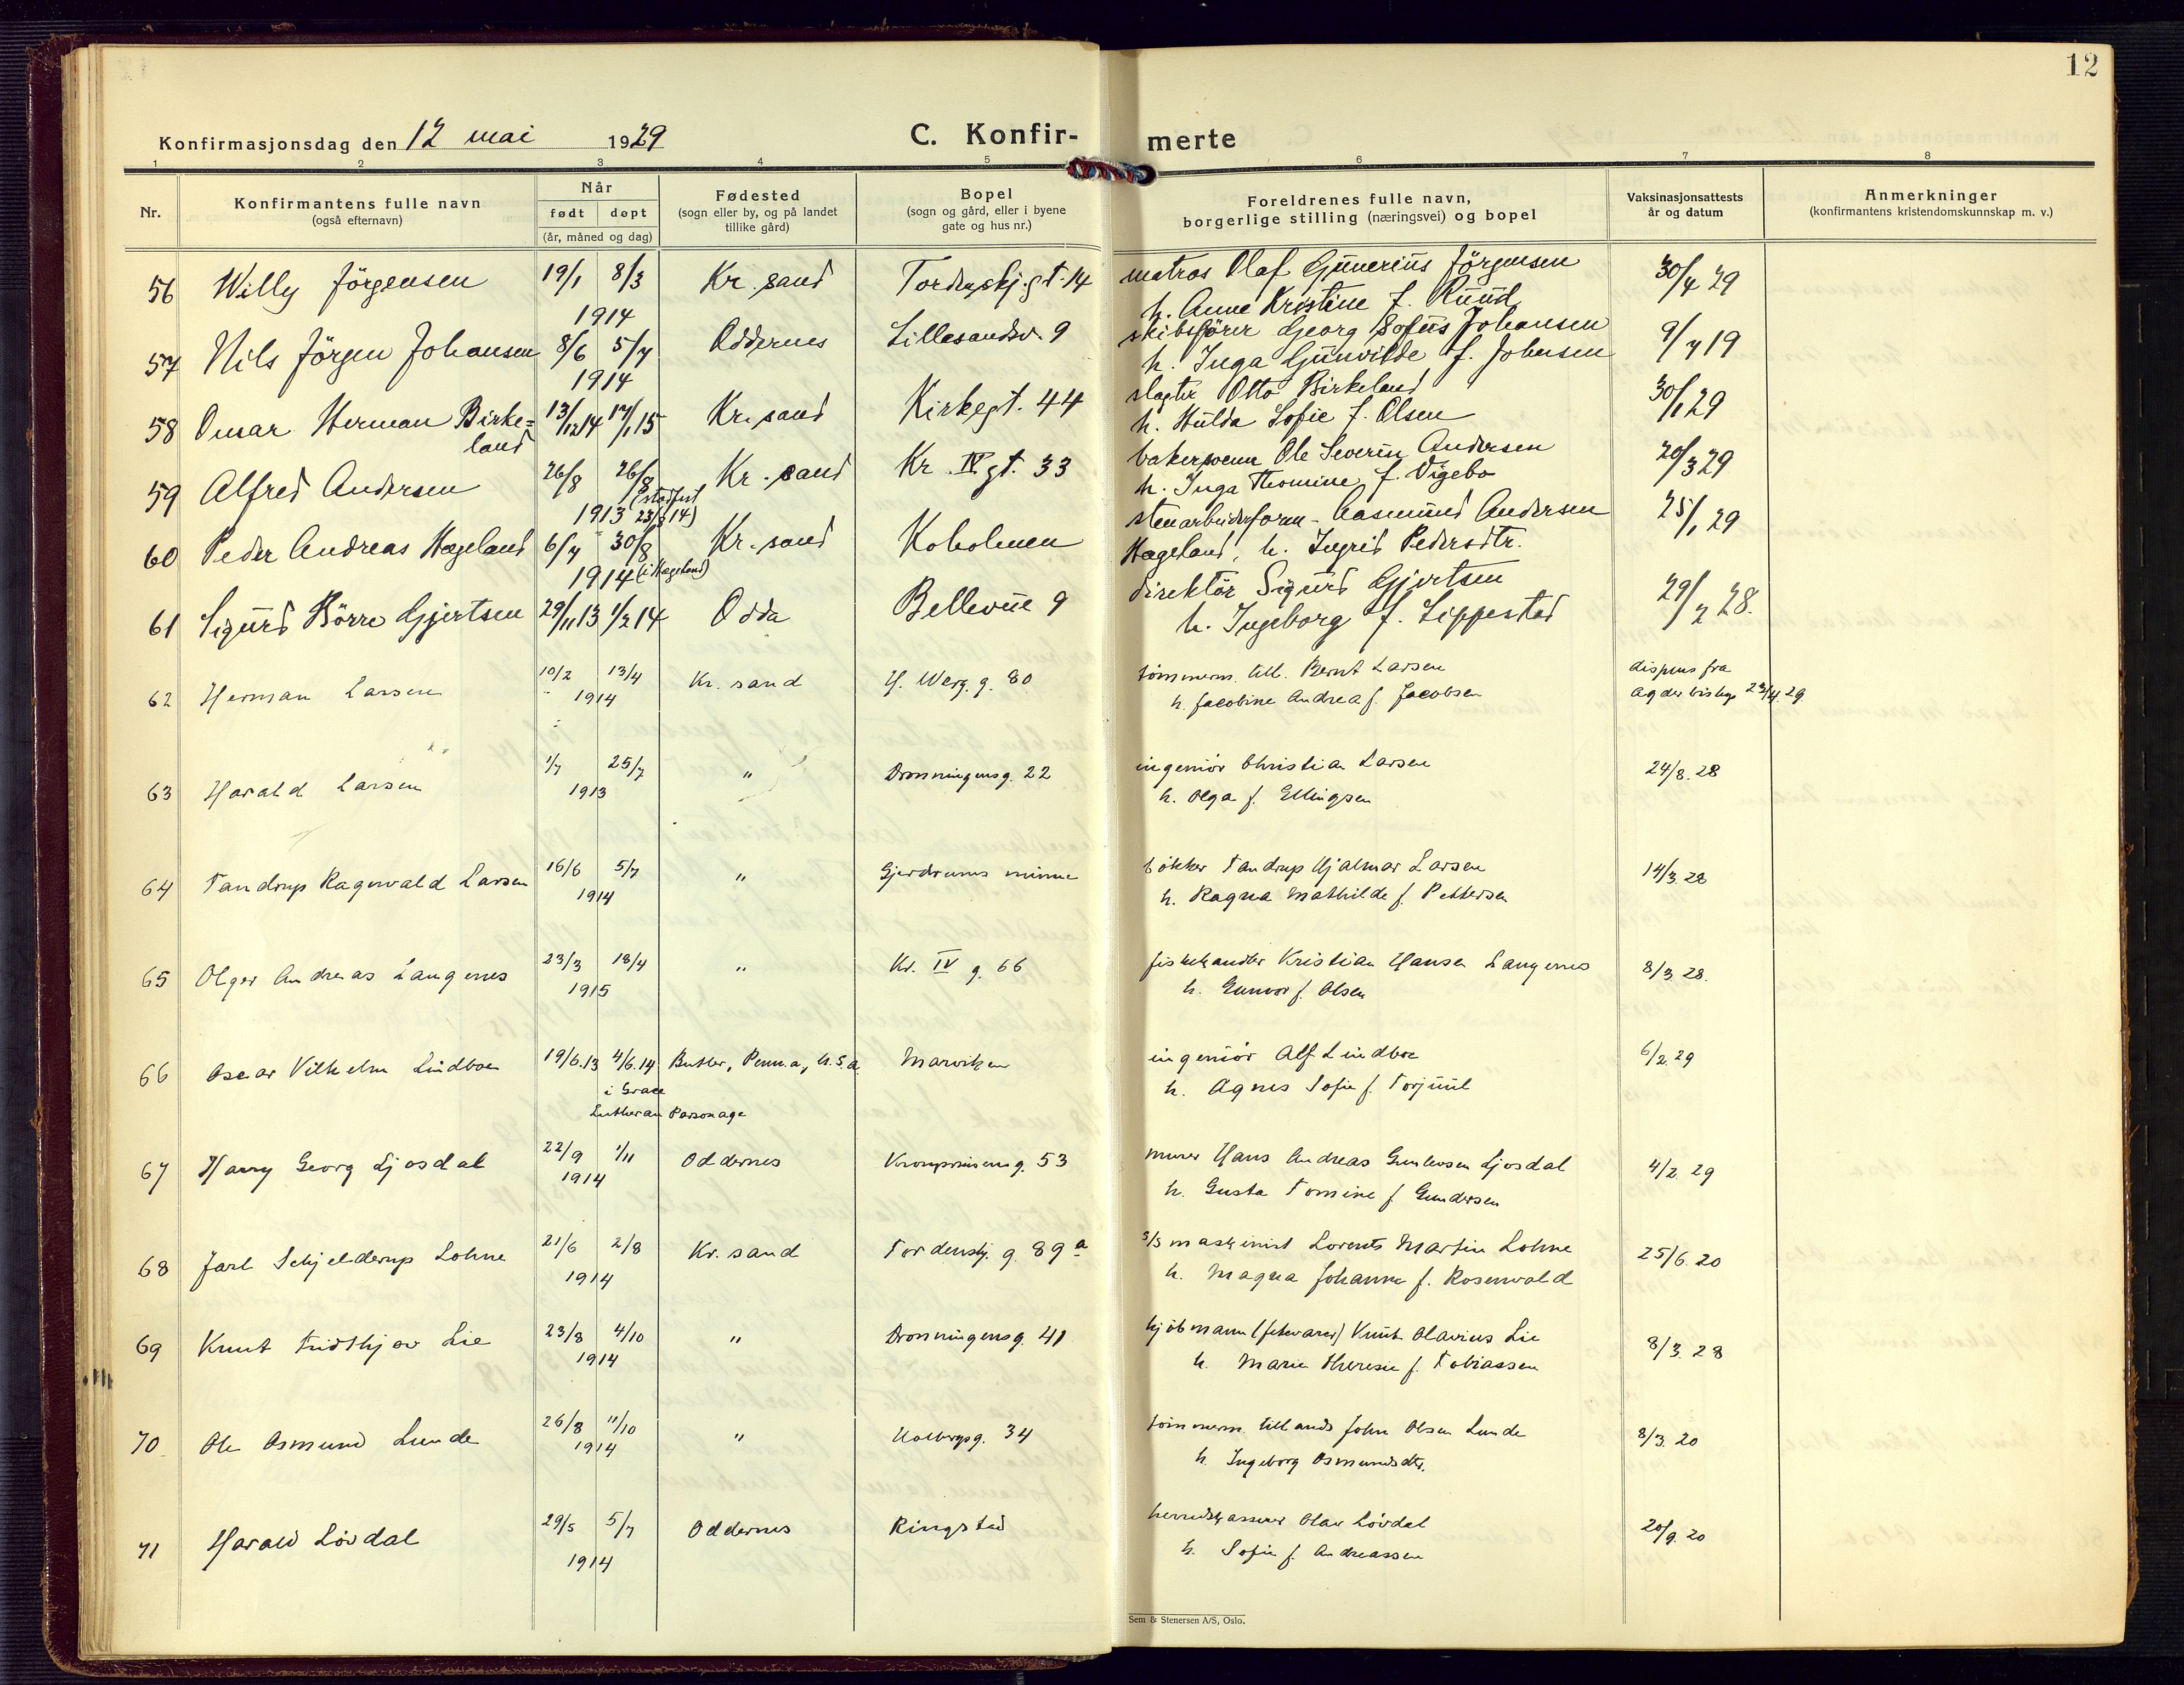 12
Konfirmasjonsdag den 12 mai 1929
C. Konfir-
merte
1 2 3 4 5 6 7 8
Nr.
Konfirmantens fulle navn
(også efternavn)
Når
født døpt
(år, måned og dag)
Fødested
(sogn eller by, og på landet
tillike gård)
Bopel
(sogn og gård, eller i byene
gate og hus nr.)
Foreldrenes fulle navn,
borgerlige stilling (næringsvei) og bopel
Vaksinasjonsattests
år og datum
Anmerkninger
(konfirmantens kristendomskunnskap m. v.)
56 Willy Jörgensen 19/1 8/3 Kr. sand Tordenskj.gt. 14 matros Olaf Gunerius Jörgensen 30/4 29
1914 h. Anne Kristine f. Ruud
57 Nils Jörgen Johansen 8/6 5/7 Oddernes Lillesandsv. 9 skibsfører Georg Sofus Johansen 9/7 19
1914 h. Inga Gunvilde f. Johnsen
58 Omar Herman Birke= 13/12 14 17/1 15 Kr. sand Kirkegt. 44 slagter Otto Birkeland 30/1 29
land h. Hulda Sofie f. Olsen
59 Alfred Andersen 26/8 26/8 Kr. sand Kr. IV gt. 33 bakersvenn Ole Severin Andersen 20/3 29
(stadfest h. Inga Thomine f. Vigebo
1913 23/8 14)
60 Peder Andreas Hægeland 6/7 30/8 Kr. sand Koholmen stenarbeiderform- Aasmund Andersen 25/1 29
1914 (i Hægeland) Hægeland, h. Ingrid Pedersdtr.
61 Sigurd Börre Gjertsen 29/11 13 1/2 14 Odda Bellevue 9 direktör Sigurd Gjertsen 29/2 28.
h. Ingeborg f. Lippestad
62 Herman Larsen 10/2 13/4 Kr. sand H. Werg. g. 80 tömmerm. till. Bernt Larsen dispens fra
1914 h. Jacobine Andrea f. Jacobsen Agder biskop 23/4. 29
63 Harald Larsen 1/7 25/7 " Dronningensg. 22 ingeniör Christian Larsen 24/8. 28
1913 h. Olga f. Ellingsen
64 Tandrup Ragnvald Larsen 16/6 5/7 " Gjerdrums minne bökker Tandrup Hjalmar Larsen 14/3. 28
1914 h. Ragna Mathilde f. Pettersen
65 Olger Andreas Langenes 23/3 18/4 " Kr. IV g. 66 fiskehandler Kristian Hansen Langenes 8/3. 28.
1915 h. Gunvor f. Olsen
66 Oscar Vilhelm Lindboe 19/6.13 4/6.14 Butler, Penn.a, U.S.a. Marviken ingeniör Alf Lindboe 6/2. 29
i Grace h. Agnes Sofie f. Torjuul
Lutheran Parsonage
67 Harry Georg Ljosdal 22/9 1/11 Oddernes Kronprinsensg. 53 murer Hans Andreas Gundersen Ljosdal 4/2. 29
1914 h. Gusta Tomine f. Gundersen
68 Jarl Schjelderup Lohne 21/6 2/8 Kr. sand Tordenskj. g. 89 a s/s maskinist Lorents Martin Lohne 25/6. 20
1914 h. Magna Johanne f. Rosenvald
69 Knut Fridthjov Lie 23/8 4/10 " Dronningensg. 41 kjöbmann (fetevarer) Knut Olavius Lie 8/3. 28
1914 h. Marie Theresie f. Tobiassen
70 Ole Osmund Lunde 26/8 11/10 " Holbergsg. 34 tömmerm. tillands John Olsen Lunde 8/3. 20
1914 h. Ingeborg Osmundsdtr.
71 Harald Lövdal 29/5 5/7 Oddernes Ringstad herredskasserer Olav Lövdal 20/9. 20
1914 h. Sofie f. Andreassen
Sem & Stenersen A/S, Oslo.